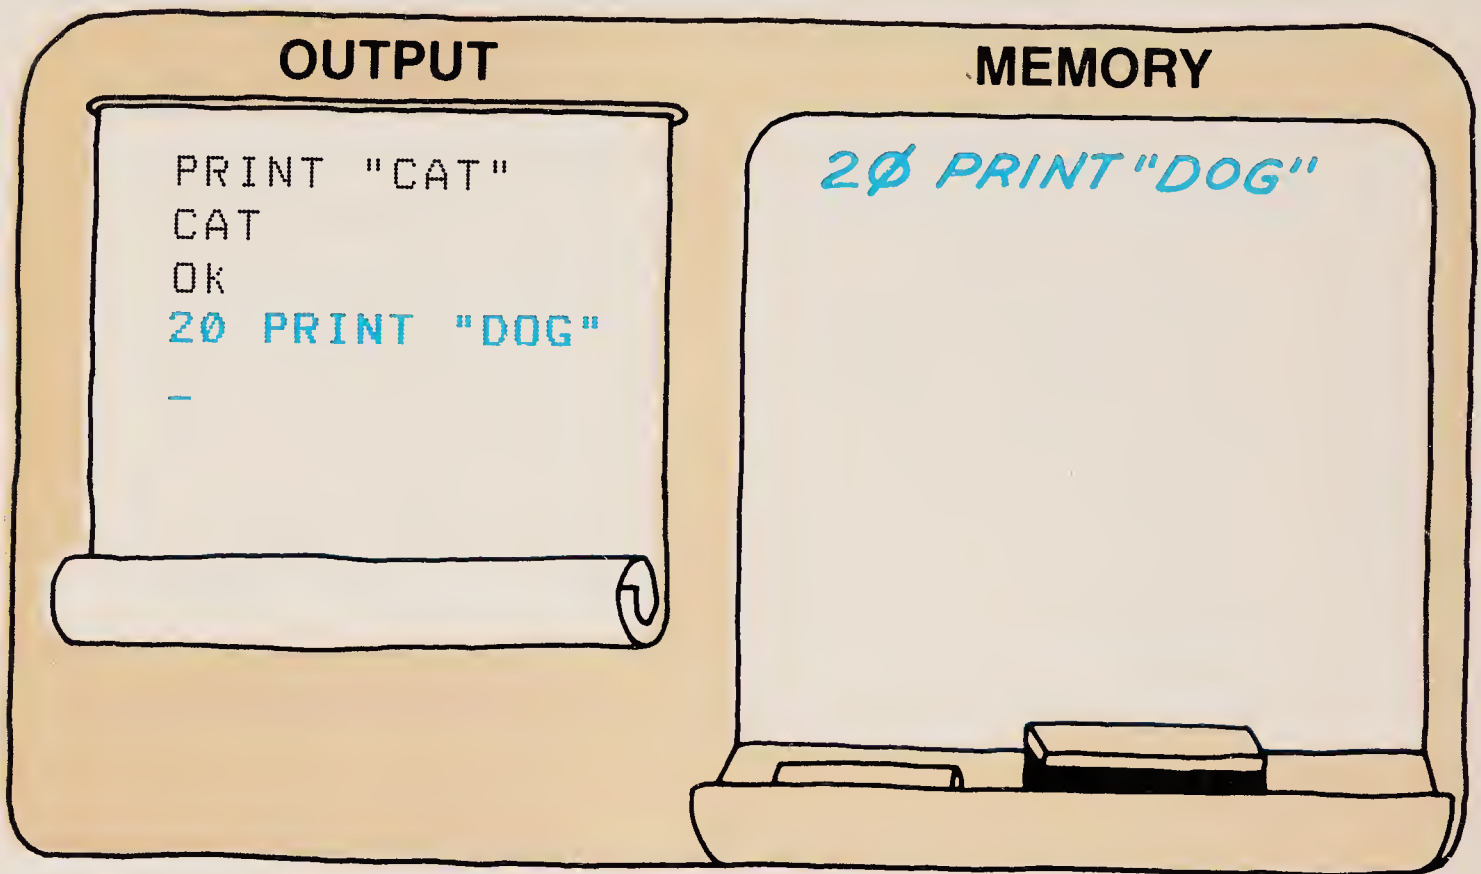 OUTPUT
PRINT "CAT"
CAT
OK
20 PRINT "DOG"
_
MEMORY
20 PRINT "DOG"